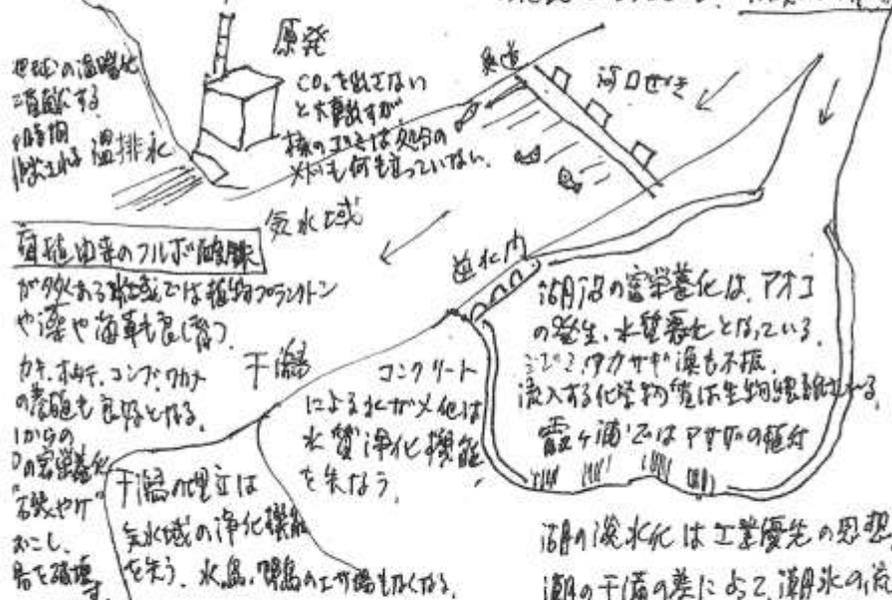 原発
世界の温暖化
に貢献にする
温排水
CO₂を出さない
と大事ですが
核のゴミは処分の
メドも何も立っていない。
魚道
河口ぜき
汽水域
腐植由来のフルボ酸鉄
が多くある水域では植物プランクトン
や藻や海草も良く育つ。
カキ、ホタテ、コンブ、ワカメ
の養殖も良好となる。
からの
の富栄養化
"石焼やけ"
おこし、
を破壊
す
干潟
逆水門
コンクリート
による水ガメ化は
水質浄化機能
を失なう。
干潟の埋立は
汽水域の浄化機能
を失う。水鳥、のエサ場もなくなる。
湖沼の富栄養化は、アオコ
の発生、水質悪化となっている。
ワカサギ漁も不振、
流入する化学物質は生物
霞ヶ浦ではアサザの植付
湖の淡水化は工業優先の思想
潮の干満の差によって、潮水の流